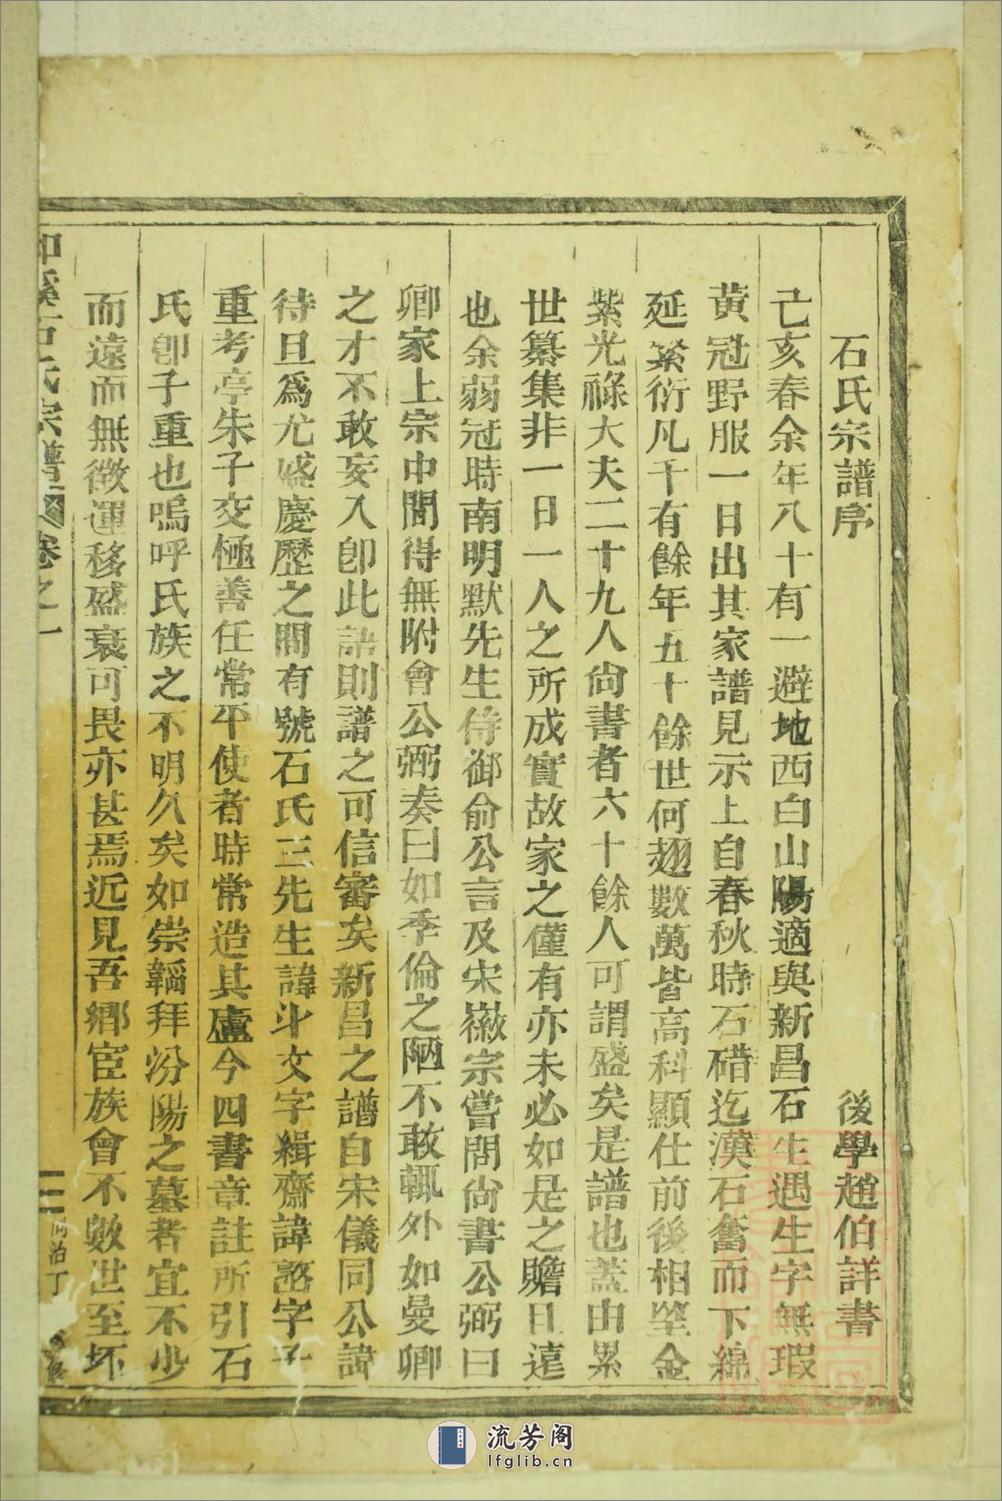 石氏宗譜序
後學趙伯詳書
己亥春余年八十有一避地西白山陽適與新昌石生遇生字無瑕
黃冠野服一日出其家譜見示上自春秋時石碏迄漢石奮而下綿
延繁衍凡千有餘年五十餘世何趐數萬皆高科顯仕前後相望金
紫光祿大夫二十九人尙書者六十餘人可謂盛矣是譜也蓋由累
世纂集非一日一人之所成實故家之僅有亦未必如是之贍且遠
也余弱冠時南明默先生侍御俞公言及宋徽宗嘗問尙書公弼曰
卿家上宗中間得無附會公弼奏曰如季倫之陋不敢輒外如曼卿
之才不敢妄入卽此語則譜之可信審矣新昌之譜自宋儀同公諱
待旦爲尤盛慶歷之間有號石氏三先生諱斗文字緝齋諱㦤字子
重考亭朱子交極善任常平使者時常造其廬今四書章註所引石
氏卽子重也嗚呼氏族之不明久矣如崇韜拜汾陽之墓者宜不少
而遠而無徵運移盛衰可畏亦甚焉近見吾鄉宦族會不數世至坏
石氏宗譜 卷之一
二
治丁
流芳阁
lfglib.cn